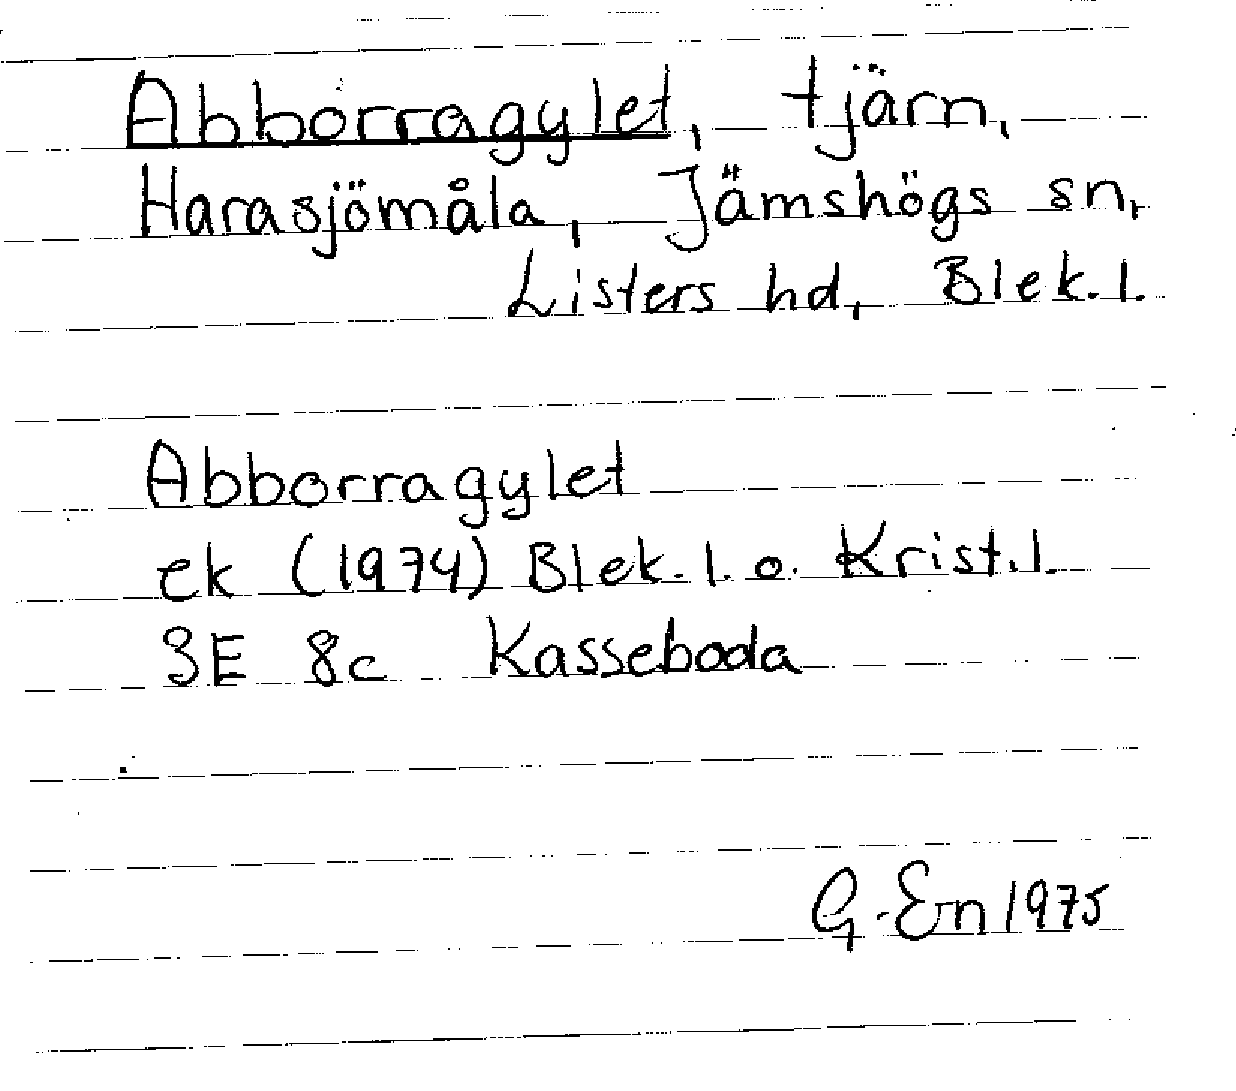 Abborragylet, tjärn,
Harasjömåla, Jämshögs sn,
Listers hd, Blek.l.
Abborragylet
ek (1974) Blek.l. o. Krist.l.
3E 8c Kasseboda
G. Ern 1975